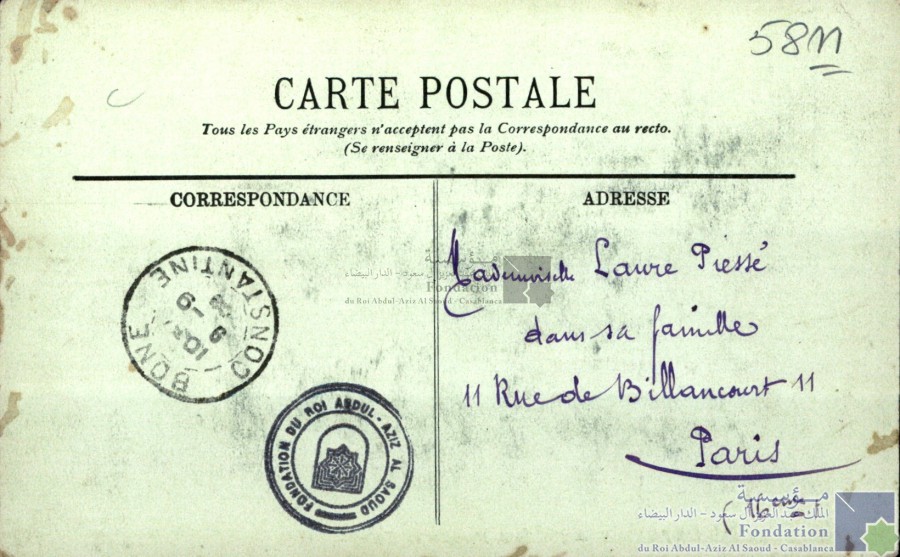 58111
CARTE POSTALE
Tous les Pays étrangers n'acceptent pas la Correspondance au recto.
(Se renseigner à la Poste).
CORRESPONDANCE
ADRESSE
BONE CONSTANTINE
Mademoiselle Laure Piessé
dans sa famille
11 Rue de Billancourt 11
Paris
FONDATION DU ROI ABDUL-AZIZ AL SAOUD
مؤسسة
الملك عبد العزيز آل سعود - الدار البيضاء
Fondation
du Roi Abdul-Aziz Al Saoud - Casablanca
مؤسسة
الملك عبد العزيز آل سعود - الدار البيضاء
Fondation
du Roi Abdul-Aziz Al Saoud - Casablanca